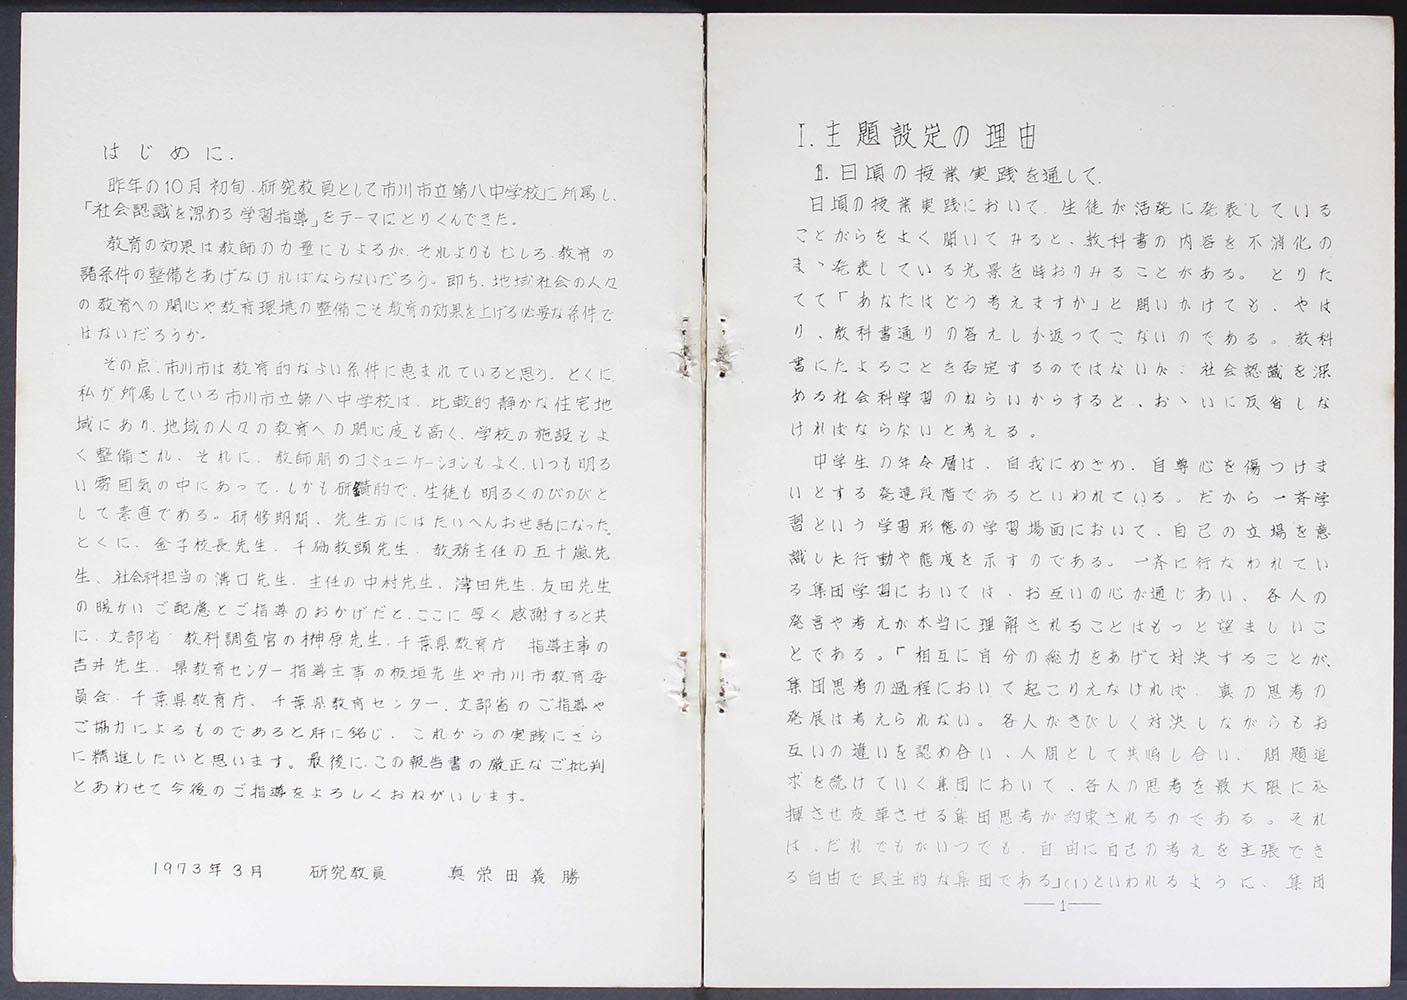 はじめに.
昨年の10月初旬.研究教員として市川市立第八中学校に所属し、
「社会認識を深める学習指導」をテーマにとりくんできた。
教育の効果は教師の力量にもよるが、それよりもむしろ、教育の
諸条件の整備をあげなければならないだろう。即ち、地域社会の人々
の教育への関心や教育環境の整備こそ教育の効果を上げる必要な条件で
はないだろうか。
その点、市川市は教育的なよい条件に恵まれていると思う。とくに、
私が所属している市川市立第八中学校は、比較的静かな住宅地
域にあり、地域の人々の教育への関心度も高く、学校の施設もよ
く整備され、それに、教師間のコミュニケーションもよく、いつも明る
い雰囲気の中にあって、しかも研鑚的で、生徒も明るくのびのびと
して素直である。研修期間、先生方にはたいへんお世話になった。
とくに、金子校長先生、千 教頭先生、教務主任の五十嵐先
生、社会科担当の溝口先生、主任の中村先生、津田先生、友田先生
の暖かいご配慮とご指導のおかげだと、ここに厚く感謝すると共
に、文部省 教科調査官の榊原先生、千葉県教育庁 指導主事の
吉井先生、県教育センター指導主事の板垣先生や市川市教育委
員会、千葉県教育庁、千葉県教育センター、文部省のご指導や
ご協力によるものであると肝に銘じ、これからの実践にさら
に精進したいと思います。最後に、この報告書の厳正なご批判
とあわせて今後のご指導をよろしくおねがいします。
1973年3月 研究教員 真栄田義勝
I.主題設定の理由
1.日頃の授業実践を通して.
日頃の授業実践において、生徒が活発に発表している
ことがらをよく聞いてみると、教科書の内容を不消化の
まゝ発表している光景を時おりみることがある。とりた
てて「あなたはどう考えますか」と問いかけても、やは
り、教科書通りの答えしか返ってこないのである。教科
書にたよることを否定するのではないが、社会認識を深
める社会科学習のねらいからすると、おゝいに反省しな
ければならないと考える。
中学生の年令層は、自我にめざめ、自尊心を傷つけま
いとする発達段階であるといわれている。だから一斉学
習という学習形態の学習場面において、自己の立場を意
識した行動や態度を示すのである。一斉に行なわれてい
る集団学習においては、お互いの心が通じあい、各人の
発言や考えが本当に理解されることはもっと望ましいこ
とである。「相互に自分の総力をあげて対決することが、
集団思考の過程において起こりえなければ、真の思考の
発展は考えられない。各人がきびしく対決しながらもお
互いの違いを認め合い、人間として共鳴し合い、問題追
求を続けていく集団において、各人の思考を最大限に発
揮させ変革させる集団思考が約束されるのである。それ
は、だれでもがいつでも、自由に自己の考えを主張でき
る自由で民主的な集団である」(1)といわれるように、集団
1